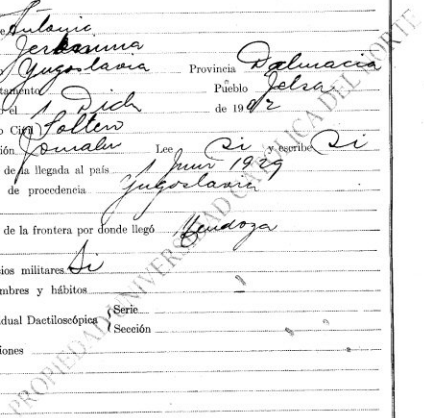 e Antonio
Jeronima
o Yugoslavia Provincia Dalmacia
tamento Pueblo Jelsa
o el 1 Dich de 1902
o Civil Soltero
ión Jornalero Lee Si y escribe Si
de la llegada al país 1 Junio 1929
de procedencia Yugoslavia
de la frontera por donde llegó Mendoza
ios militares Si
mbres y hábitos "
dual Dactiloscópica Serie
Sección " "
iones "
PROPIEDAD UNIVERSIDAD CATÓLICA DEL NORTE